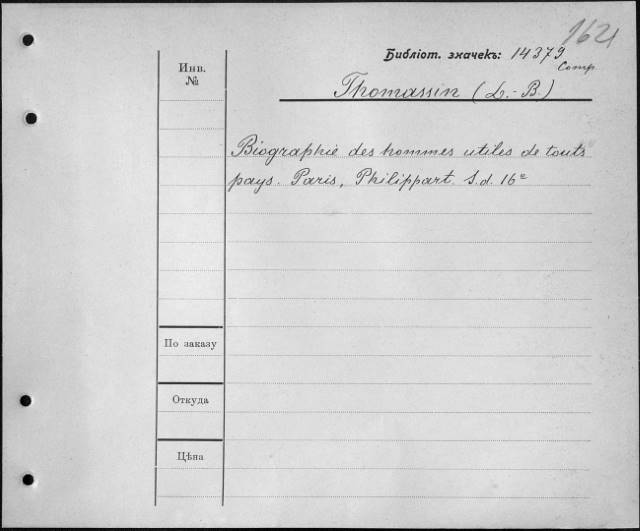 1621
Библіот. значекъ: 14379
Comp.
Инв.
№
Thomassin (L.-B.)
Biographie des hommes utiles de touts
pays. Paris, Philippart. S.d. 16º
По заказу
Откуда
Цѣна